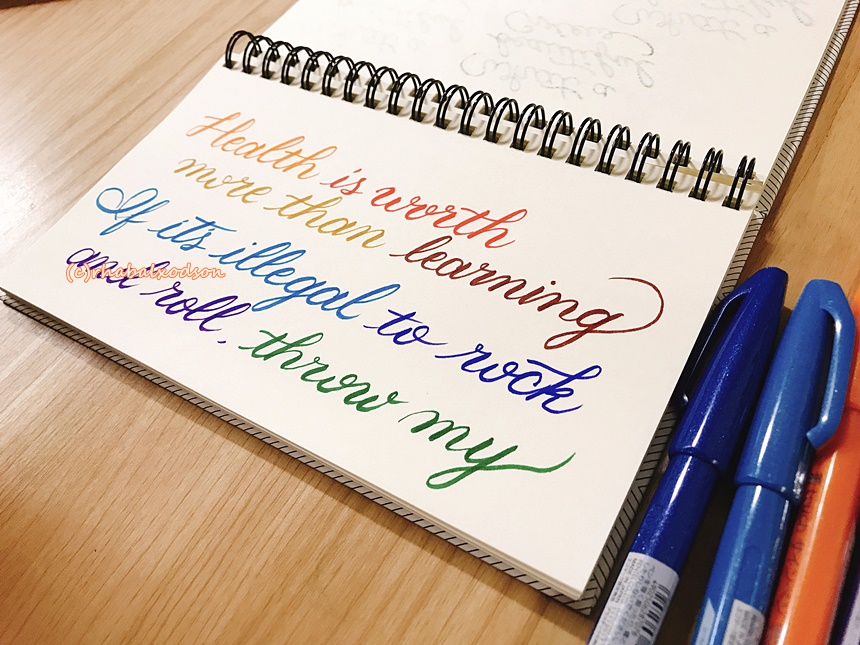 Health is worth
more than learning
If it's illegal to rock
and roll, throw my
(c)rhabatxodson